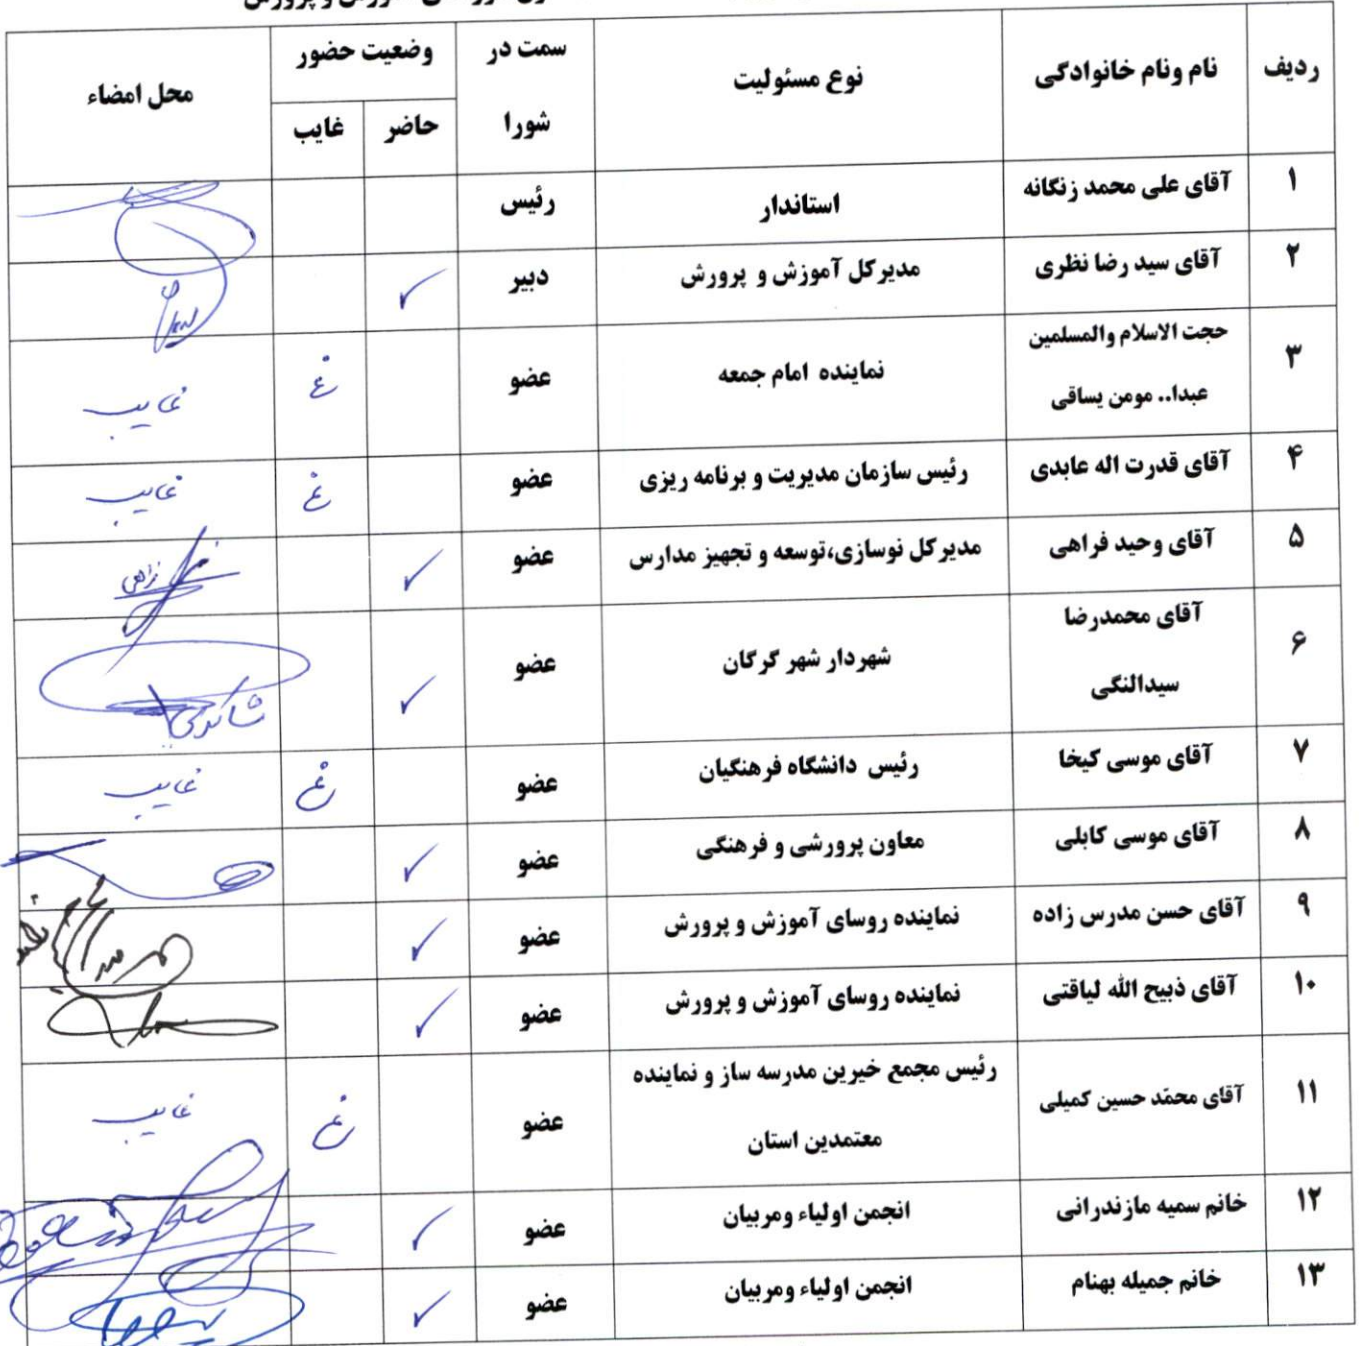 آموزش و پرورش
ردیف نام ونام خانوادگی نوع مسئولیت سمت در شورا وضعیت حضور محل امضاء
حاضر غایب
۱ آقای علی محمد زنگانه استاندار رئیس
۲ آقای سید رضا نظری مدیرکل آموزش و پرورش دبیر ✓
۳ حجت الاسلام والمسلمین نماینده امام جمعه عضو غ غایب
عبدا.. مومن یساقی
۴ آقای قدرت اله عابدی رئیس سازمان مدیریت و برنامه ریزی عضو غ غایب
۵ آقای وحید فراهی مدیرکل نوسازی،توسعه و تجهیز مدارس عضو ✓ فراهی
۶ آقای محمدرضا شهردار شهر گرگان عضو ✓
سیدالنگی
۷ آقای موسی کیخا رئیس دانشگاه فرهنگیان عضو غ غایب
۸ آقای موسی کابلی معاون پرورشی و فرهنگی عضو ✓
۹ آقای حسن مدرس زاده نماینده روسای آموزش و پرورش عضو ✓
۱۰ آقای ذبیح الله لیاقتی نماینده روسای آموزش و پرورش عضو ✓
۱۱ آقای محمّد حسین کمیلی رئیس مجمع خیرین مدرسه ساز و نماینده عضو غ غایب
معتمدین استان
۱۲ خانم سمیه مازندرانی انجمن اولیاء ومربیان عضو ✓
۱۳ خانم جمیله بهنام انجمن اولیاء ومربیان عضو ✓